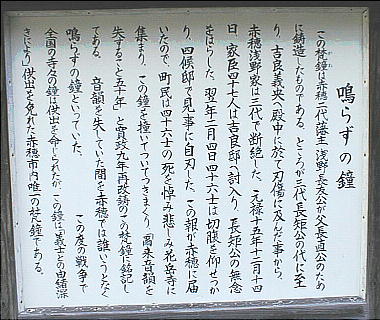 鳴らずの鐘
この梵鐘は赤穂二代藩主浅野長友公が父長直公のため
に鋳造したものである。ところが三代長矩公の代に至
り、吉良義央へ殿中に於て刃傷に及んだ事から、
赤穂浅野家は三代で断絶した。元禄十五年十二月十四
日、家臣四十七人は吉良邸へ討入り、長矩公の無念
をはらした。翌年二月四日四十六士は切腹を仰せつか
り、四候邸で見事に自刃した。この報が赤穂に届
いたので、町民は四十六士の死を悼み悲しみ花岳寺に
集まり、この鐘を撞いてついてつきまくり、爾来音韻を
失すること五十年と寛政九年再改鋳のこの梵鐘に銘記し
てある。音韻を失していた間を赤穂では誰いうとなく
鳴らずの鐘といっていた。この度の戦争で
全国の寺々の鐘は供出を命じられたが、この鐘は「義士との由緒深
きにより」供出を免れた赤穂市内唯一の梵鐘である。